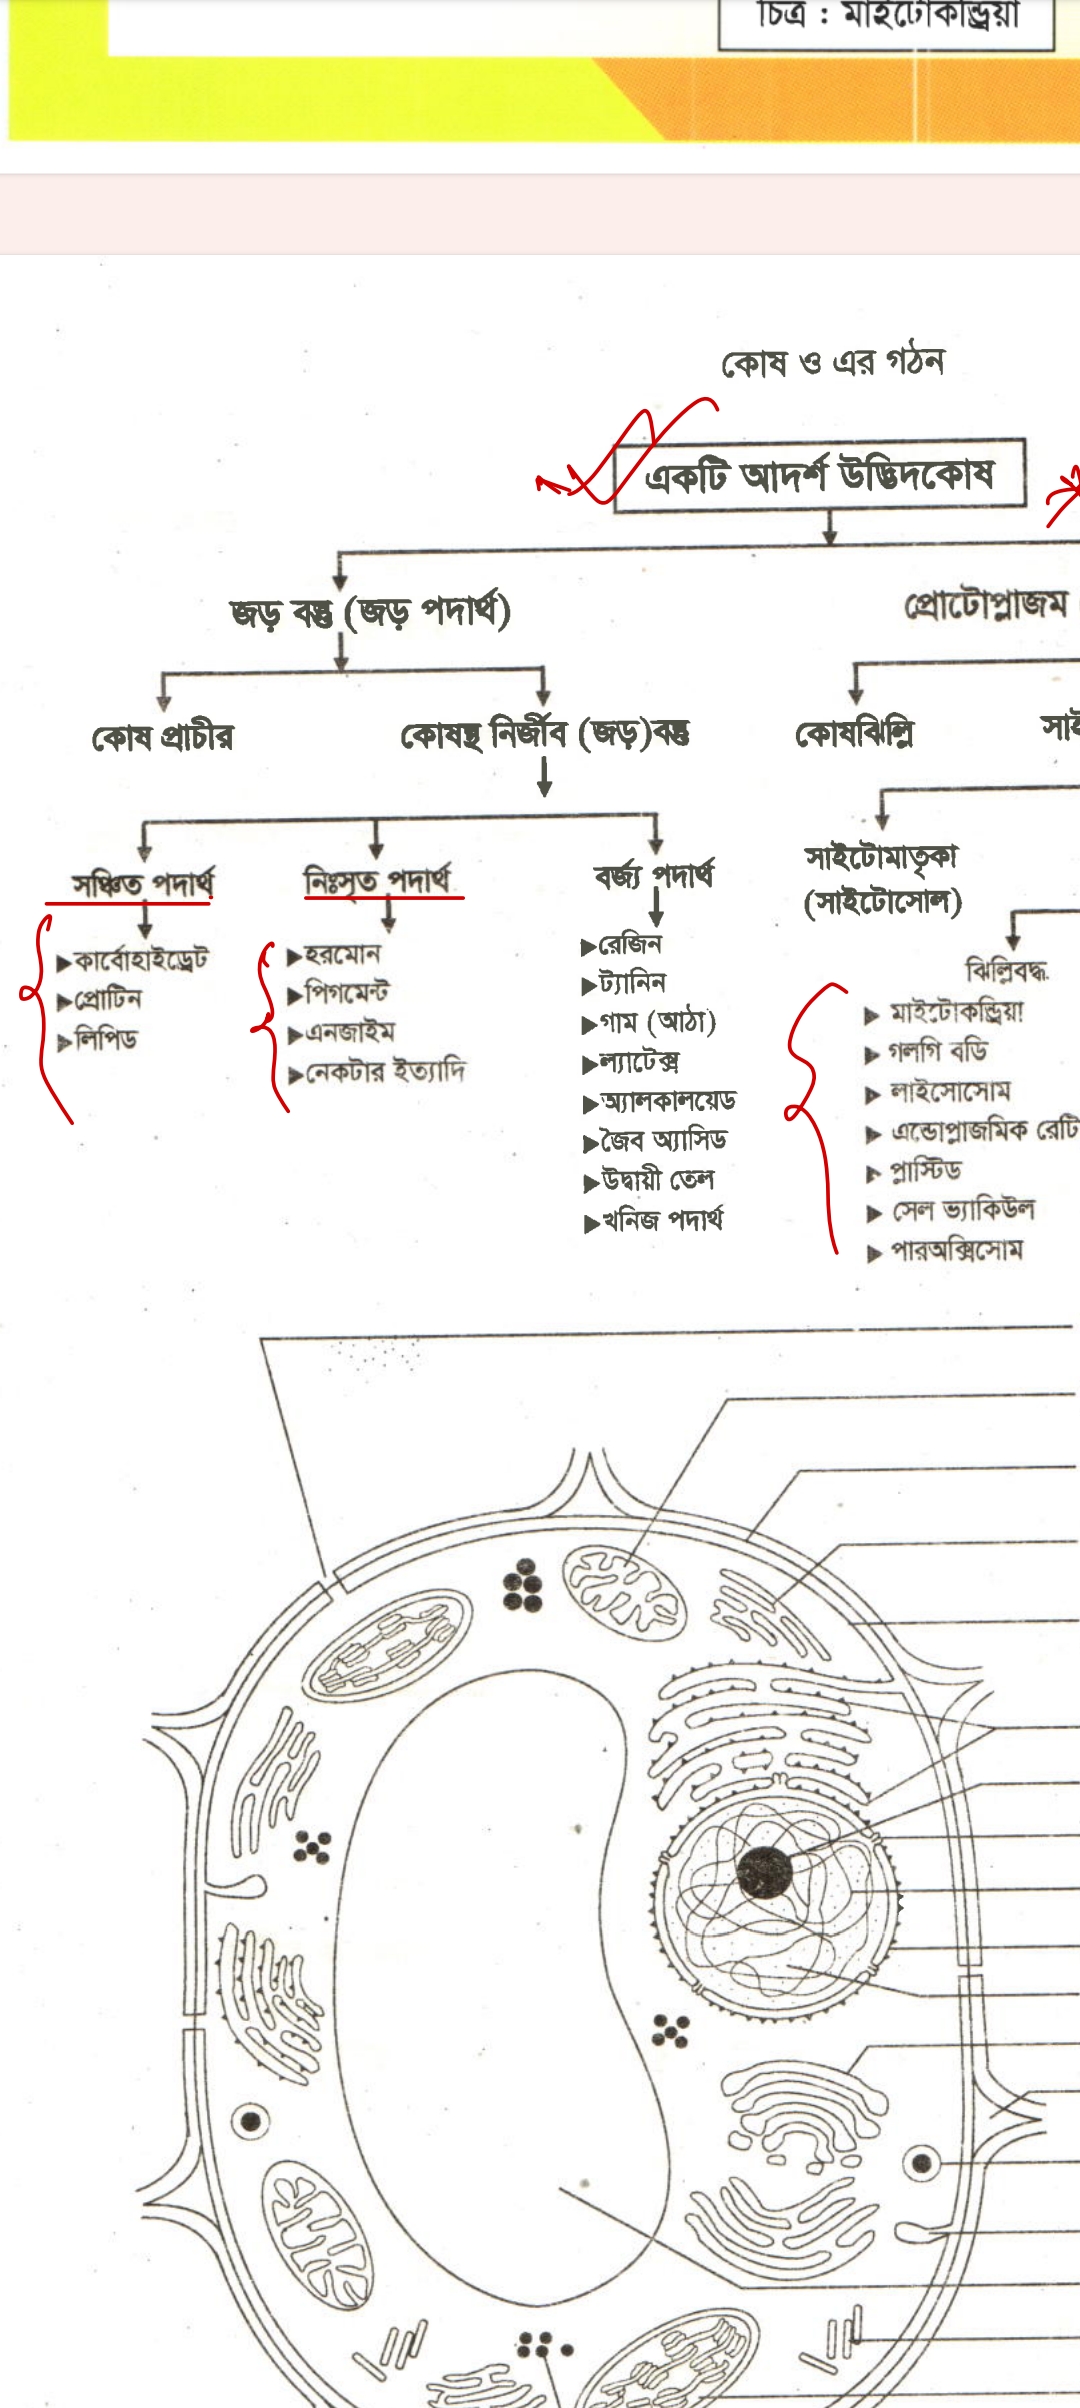 চিত্র : মাইটোকন্ড্রিয়া
কোষ ও এর গঠন
একটি আদর্শ উদ্ভিদকোষ
জড় বস্তু (জড় পদার্থ)
প্রোটোপ্লাজম
কোষ প্রাচীর
কোষস্থ নির্জীব (জড়)বস্তু
কোষঝিল্লি
সঞ্চিত পদার্থ
নিঃসৃত পদার্থ
বর্জ্য পদার্থ
সাইটোমাতৃকা
(সাইটোসোল)
▶কার্বোহাইড্রেট
▶প্রোটিন
▶লিপিড
▶হরমোন
▶পিগমেন্ট
▶এনজাইম
▶নেকটার ইত্যাদি
▶রেজিন
▶ট্যানিন
▶গাম (আঠা)
▶ল্যাটেক্স
▶অ্যালকালয়েড
▶জৈব অ্যাসিড
▶উদ্বায়ী তেল
▶খনিজ পদার্থ
ঝিল্লিবদ্ধ
▶ মাইটোকন্ড্রিয়া
▶ গলগি বডি
▶ লাইসোসোম
▶ এন্ডোপ্লাজমিক রেটি
▶ প্লাস্টিড
▶ সেল ভ্যাকিউল
▶ পারঅক্সিসোম